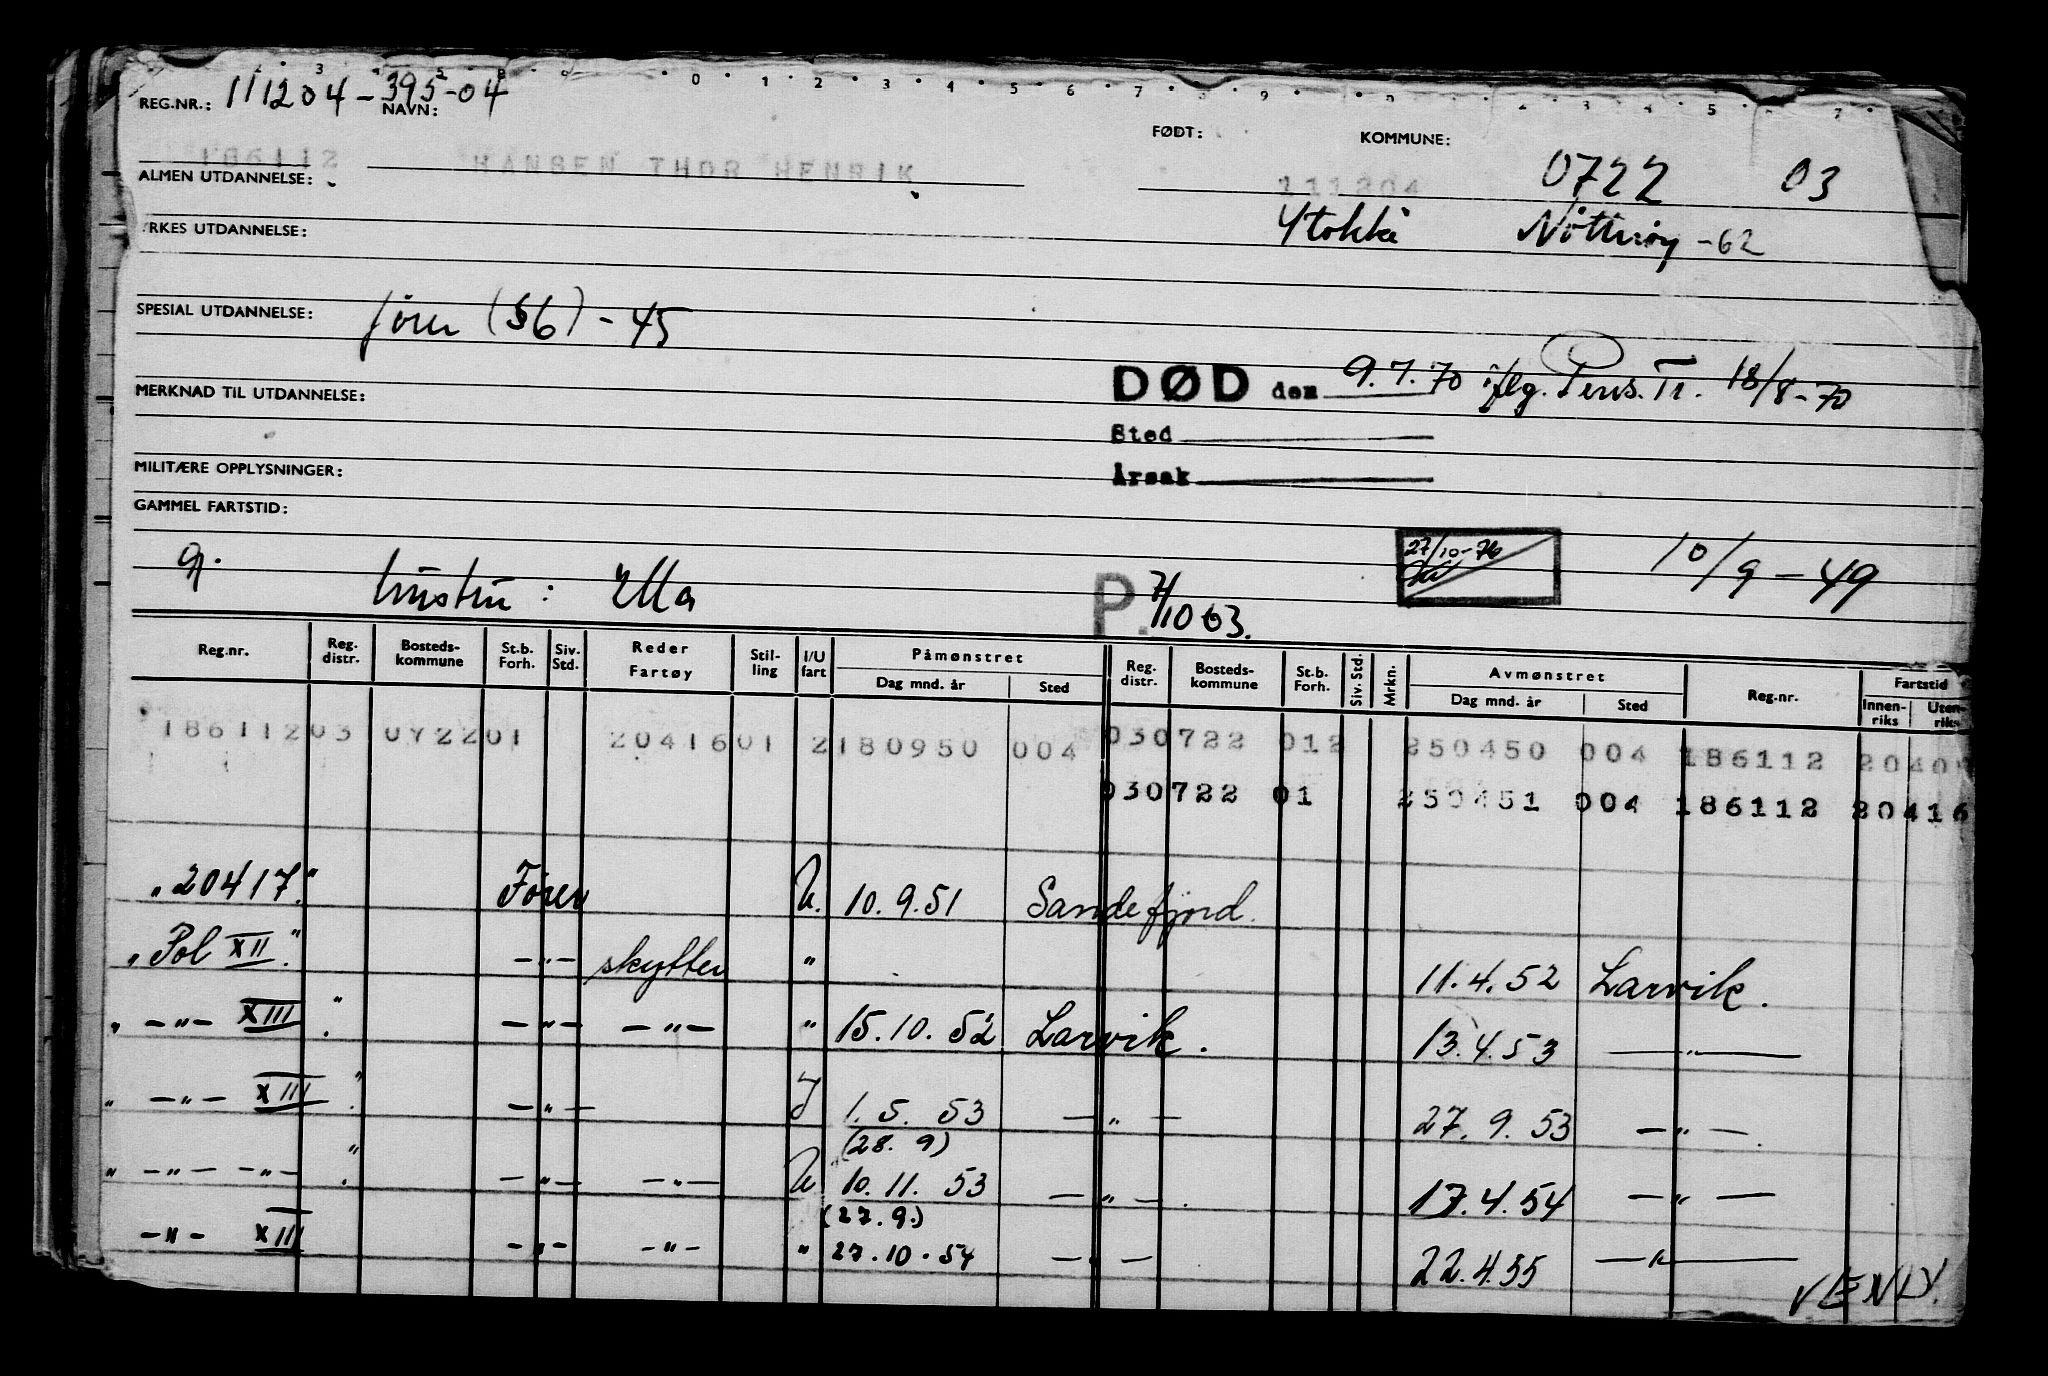 2 3 5 8 9 0 1 2 3 4 5 6 7 8 9 2 3 4 5 7
REG.NR.: 111204-395-04
NAVN:
FØDT: KOMMUNE:
186112 HANSEN THOR HENRIK 111204 0722 03
ALMEN UTDANNELSE:
Nøtterøy -62
RKES UTDANNELSE:
SPESIAL UTDANNELSE: fører (§6) - 45
DØD den 9.7.70 iflg. Pens. Tr. 18/8-70
MERKNAD TIL UTDANNELSE:
Sted
MILITÆRE OPPLYSNINGER:
Årsak
GAMMEL FARTSTID:
27/10-76 10/9-49
g. hustru: Ella P. 7/10 63.
Reg.nr. Reg. distr. Bosteds-kommune St.b. Forh. Siv. Std. Reder Fartøy Stil-ling I/U fart Påmønstret Dag mnd. år Sted Reg. distr. Bosteds-kommune St.b. Forh. Siv. Std. Mrkn. Avmønstret Dag mnd. år Sted Reg.nr. Fartstid Innen-riks Uten-riks
18611203 072201 2041601 2180950 004 030722 012 250450 004 186112 20409
030722 01 250451 004 186112 20416
"20417." Fører U. 10.9.51 Sandefjord.
"Pol XII." -"- skytter " 11.4.52 Larvik.
" -"- XIII." -"- -"- " 15.10.52 Larvik. 13.4.53 -"-
" -"- XIII." -"- I 1.5.53 -"- 27.9.53 -"-.
(28.9)
" -"- -"-." -"- -"- U 10.11.53 -"-. 17.4.54 -"-
(27.9.)
-"- XIII -"- -"- " 27.10.54 -"- 22.4.55 -"-
VEND.